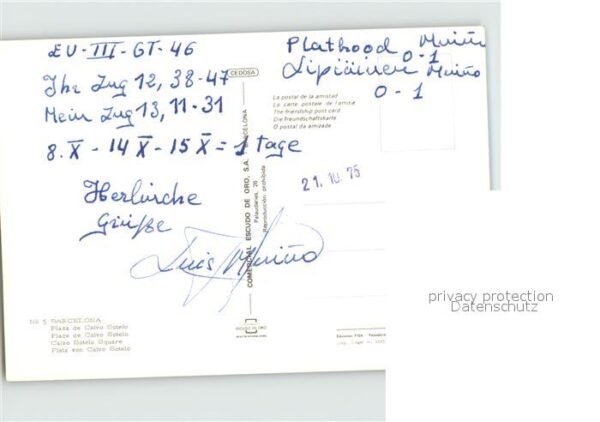 EU-III-GT-46
Ihr Zug 12, 38-47
Mein Zug 13, 11-31
8. X - 14 X - 15 X = 1 Tage
Herlische
Grüße
Luis Muiño
Plathood Muiño
0-1
Lipiäinen Muiño
0-1
CEDOSA
La postal de la amistad
La carte postale de l'amitié
The friendship post card
Die Freundschaftskarte
O postal da amizade
21. 10. 75
COMERCIAL ESCUDO DE ORO, S.A. - BARCELONA
Palaudarias, 26
Reproducción prohibida
ESCUDO DE ORO
Nº 5 BARCELONA
Plaza de Calvo Sotelo
Place de Calvo Sotelo
Calvo Sotelo Square
Platz von Calvo Sotelo
privacy protection
Datenschutz